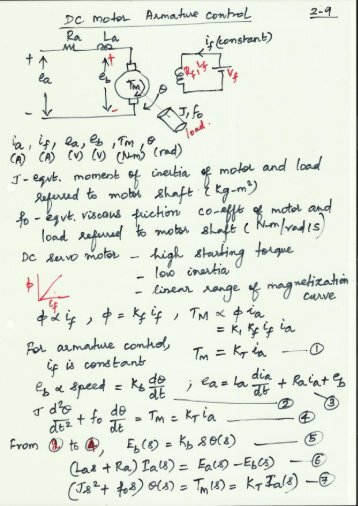 DC motor Armature control 2-9
Ra La
if (constant)
+ + Rf, Lf Vf
ea eb TM θ
- - J, fo
load
ia, if, ea, eb, TM, θ
(A) (A) (V) (V) (N-m) (rad)
J - eqvt. moment of inertia of motor and load
referred to motor shaft. (kg-m²)
fo - eqvt. viscous friction co-efft of motor and
load referred to motor shaft (N-m/rad/s)
DC servo motor - high starting torque
- low inertia
- linear range of magnetization
curve
φ if
φ ∝ if, φ = Kf if, TM ∝ φ ia
= K1 Kf if ia
For armature control,
if is constant TM = KT ia — ①
eb ∝ speed = Kb dθ/dt ; ea = La dia/dt + Ra ia + eb
② ③
J d²θ/dt² + fo dθ/dt = TM = KT ia — ④
From ② to ④, Eb(s) = Kb s θ(s) — ⑤
(La s + Ra) Ia(s) = Ea(s) - Eb(s) — ⑥
(Js² + fo s) θ(s) = TM(s) = KT Ia(s) — ⑦